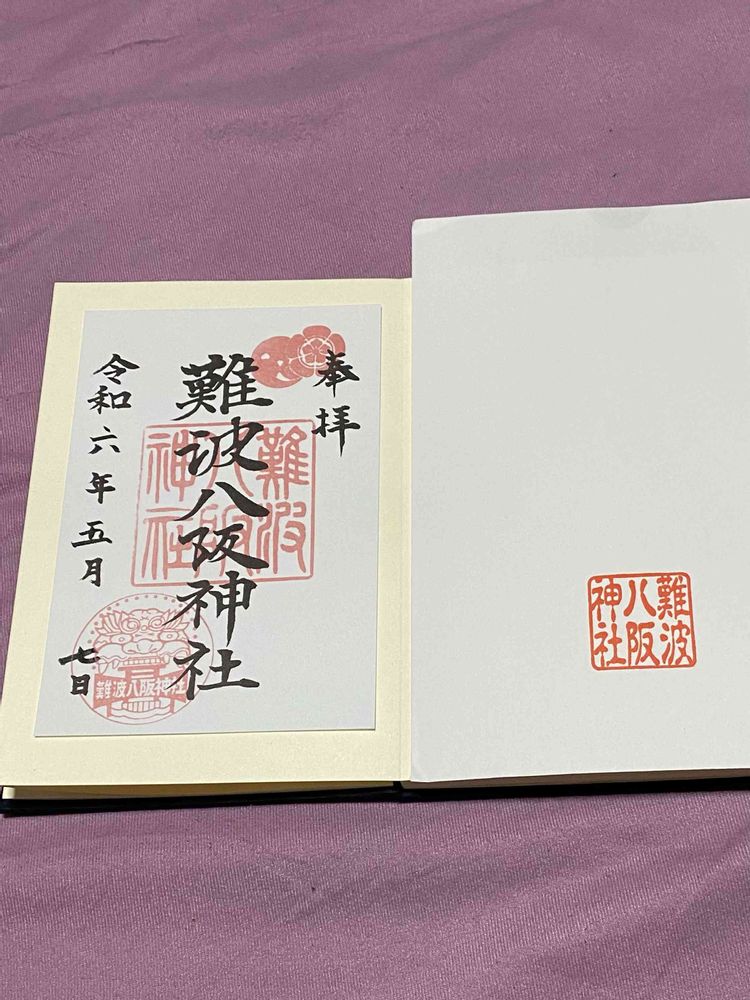 奉拝
難波八阪神社
令和六年五月七日
難波
八阪
神社
難波八阪神社
難波
八阪
神社